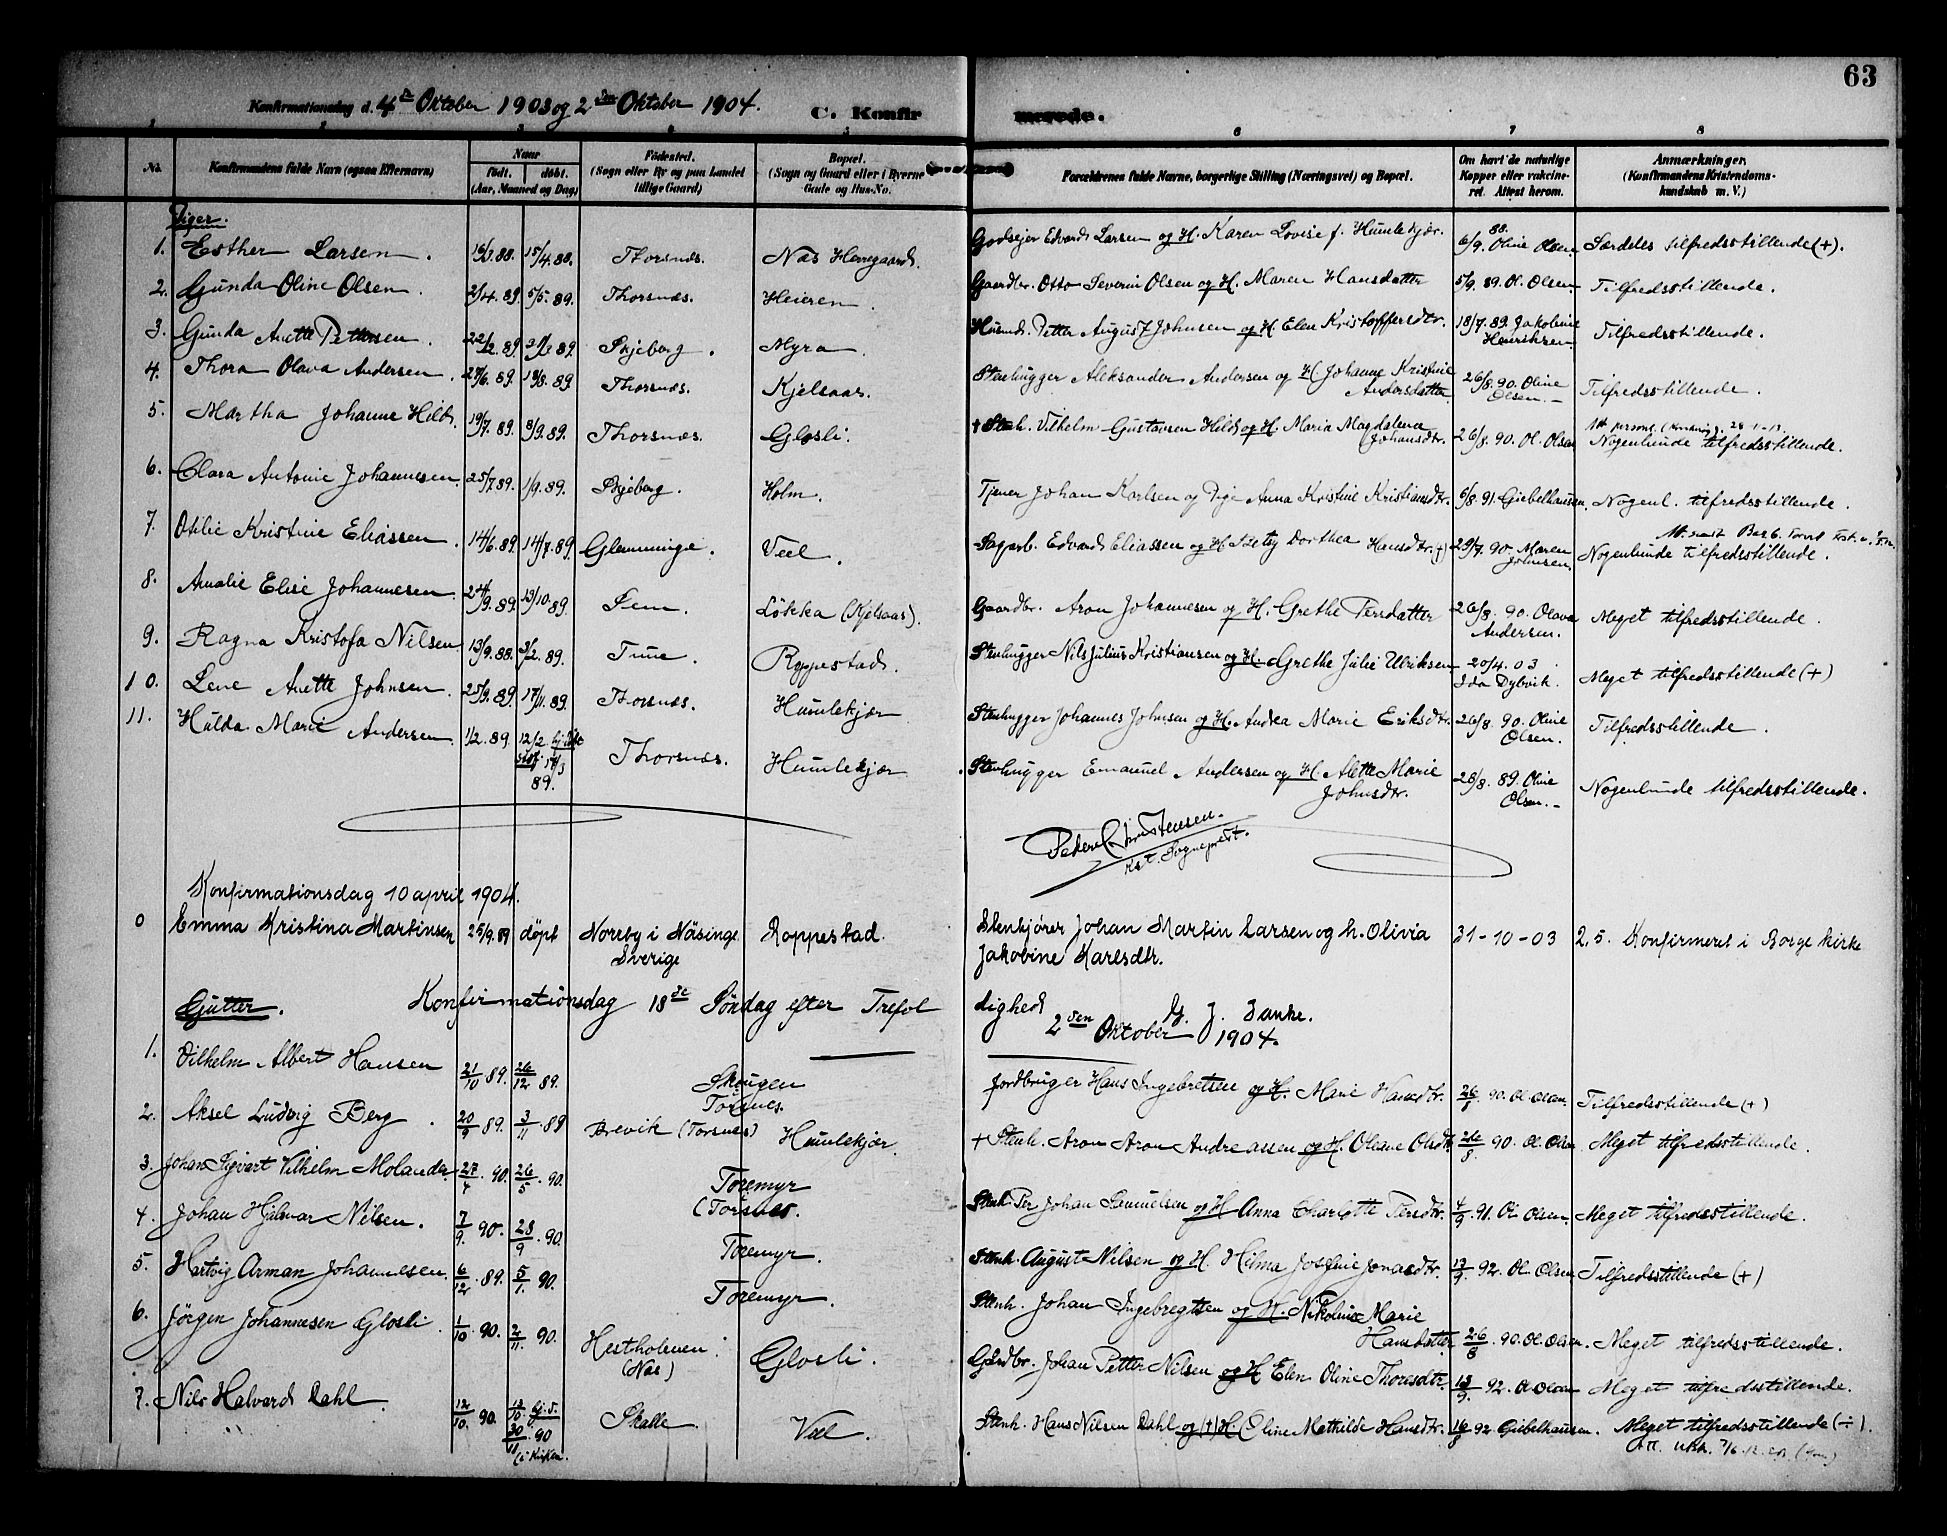 63
Konfirmationsdag d. 4de Oktober 1903 og 2den Oktober 1904. C. Konfirmerede.
1 2 3 4 5 6 7 8
No. Konfirmandens fulde Navn (ogsaa Efternavn) Naar født. døbt. (Aar, Maaned og Dag) Fødested. (Sogn eller By og paa Landet tillige Gaard) Bopæl. (Sogn og Gaard eller i Byerne Gade og Hus-No. Forældrenes fulde Navne, borgerlige Stilling (Næringsvei) og Bopæl. Om havt de naturlige Kopper eller vaccineret. Attest herom. Anmærkninger. (Konfirmandens Kristendomskundskab m. V.)
Piger.
1. Esther Larsen. 16/3.88. 15/4.88. Thorsnæs. Næs Herregaard. Godsejer Edvard Larsen og H. Karen Lovise f. Humlekjær. 6/9.88. Oline Olsen Særdeles tilfredsstillende (+).
2. Gunda Oline Olsen. 2/4.89. 5/5.89. Thorsnæs. Heieren. Gaardbr. Otto Severin Olsen og H. Maren Hansdatter 5/9.89. Ol. Olsen. Tilfredsstillende.
3. Gunda Anette Pettersen. 22/2.89. Skjeberg. Myra. Husmd. Petter August Johnsen og H Elen Kristoffersdtr. 18/7.89. Jakobine Henriksen Tilfredsstillende.
4. Thora Olava Andersen. 27/6.89. 18/8.89 Thorsnæs. Kjelsaas. Stenhugger Aleksander Andersen og H. Johanne Kristine Andersdatter 26/8.90. Oline Olsen.- Tilfredsstillende.
5. Martha Johanne Hild. 19/7.89. 8/9.89. Thorsnæs. Glosli. † Stenh. Vilhelm Gustavsen Hild og H. Maria Magdalena Johansdtr. 26/8.90. Ol. Olsen Nogenlunde tilfredsstillende.
6. Clara Antonie Johannesen. 25/7.89. 1/9.89. Skjeberg. Holm. Tjener Johan Karlsen og Pige Anna Kristine Kristiansdtr. 6/8.91. Giebelhausen. Nogenl. tilfredsstillende.
7. Otilie Kristine Eliassen. 14/6.89 14/7.89. Glemminge. Veel. Sagarb. Edvard Eliassen og H Betzy Dorthea Hansdtr. (†) 29/7.90. Maren Johnsen. Nogenlunde tilfredsstillende.
8. Amalie Elise Johannesen. 24/9.89. 13/10.89. Løkka (Kjelsaas). Gaardbr. Aron Johannesen og H. Grethe Persdatter 26/8.90. Olava Andersen. Meget tilfredsstillende.
9. Ragna Kristofa Nilsen 13/9.88. 3/2.89. Tune. Roppestad. Stenhugger Nils Julius Kristiansen og H. Grethe Julie Ulriksen 20/4.03. Ida Dybvik. Meget tilfredsstillende (+)
10. Lene Anette Johnsen. 25/9.89 17/11.89 Thorsnæs. Humlekjær Stenhugger Johannes Johnsen og H. Andrea Marie Eriksdtr. 26/8.90. Oline Olsen. Tilfredsstillende.
11. Hulda Marie Andersen. 1/2.89. 12/2. hj.døbt stadf. 17/3 89. Thorsnæs. Humlekjær Stenhugger Emanuel Andersen og H. Alette Marie Johnsdtr. 28/8.89. Oline Olsen.- Nogenlunde tilfredsstillende.
Peder Christensen.
kst. Sogneprest.
Konfirmationsdag 10 april 1904.
0 Emma Kristina Martinsen 25/9.89 døpt Noreby i Näsinge Sverige Roppestad. Stenkjører Johan Martin Larsen og h. Olivia Jakobine Karlsdtr. 31-10-03 2,5. Konfirmeret i Borge kirke
Gutter. Konfirmationsdag 18de Søndag efter Trefoldighed 2den Oktober 1904.
G. J. Zanke.
1. Vilhelm Albert Hansen 21/10 89. 26/12 89. Skougen Torsnes. Jordbruger Hans Ingebretsen og H. Marie Hansdtr. 26/8.90. Ol. Olsen. Tilfredsstillende (+)
2. Aksel Ludvig Berg. 20/9.89. 3/11.89 Brevik (Torsnes) Humlekjær. † Stenh. Aron Aron Andreassen og H. Oleane Olsdtr. 26/8.90. Ol. Olsen Meget tilfredsstillende.
3. Johan Sigvart Vilhelm Molander. 27/4.90. 26/5.90. Toremyr (Torsnes. Stenh. Per Johan Samuelsen og H Anna Charlotte Persdtr. 4/9.91. Ol Olsen. Meget tilfredsstillende.
4. Johan Hjalmar Nilsen. 7/9.90. 28/9.90. Toremyr. Stenh. August Nilsen og H. Hilma Josefine Jonasdtr. 13/9.92. Ol. Olsen Tilfredsstillende (+)
5. Hartvig Arman Johannesen. 6/12.89. 5/1.90. Toremyr. Stenh. Johan Ingebregtsen og H. Nikoline Marie Hansdatter 26/8.90. Ol. Olsen. Meget tilfredsstillende.
6. Jörgen Johannesen Glosli. 1/10.90. 2/11.90. Hestholmen. (Næs) Glosli. Gårdbr. Johan Petter Nilsen og H Elen Oline Thoresdtr. 13/9.92. Ol. Olsen Meget tilfredsstillende.
7. Nils Halvard Dahl. 12/10.90. 13/10. hj.d. 30/11.90 (i Kirken. Skalle Veel. Stenh. Hans Nilsen Dahl og (†) H. Eline Mathilde Hansdtr. 16/8 92. Giebelhausen. Meget tilfredsstillende (÷).